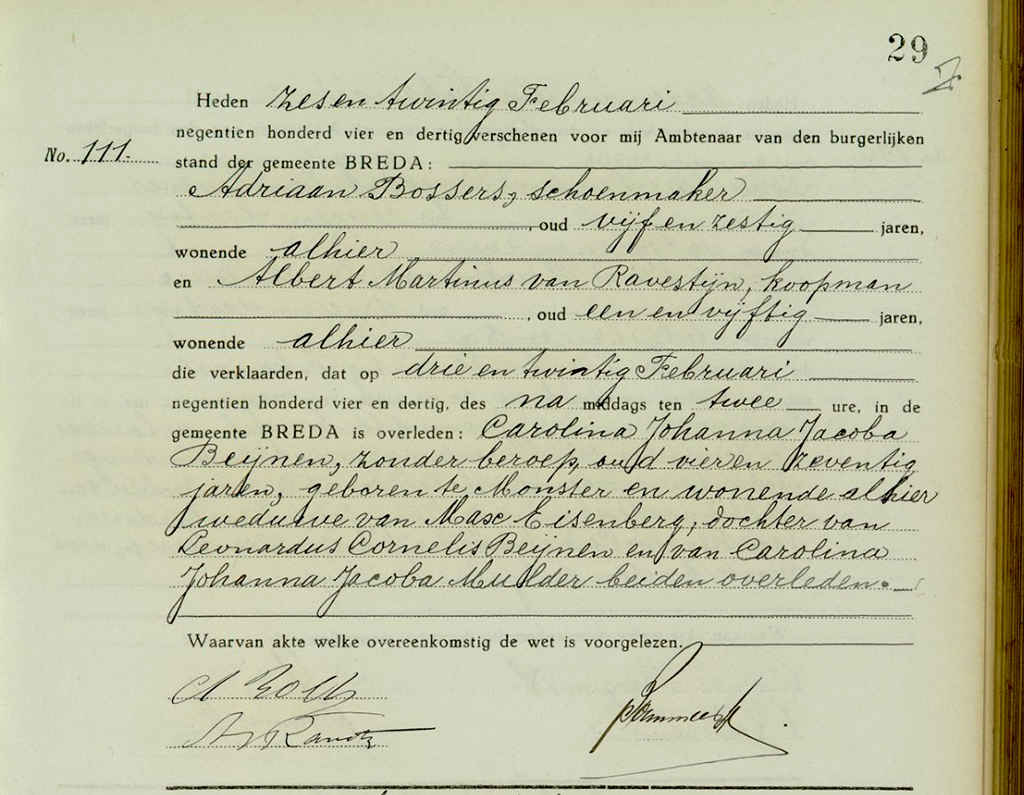 29
Heden zes en twintig Februari
negentien honderd vier en dertig verschenen voor mij Ambtenaar van den burgerlijken
No. 111.
stand der gemeente BREDA:
Adriaan Bossers, schoenmaker
, oud vijf en zestig jaren,
wonende alhier
en Albert Martinus van Ravestijn, koopman
, oud een en vijftig jaren,
wonende alhier
die verklaarden, dat op drie en twintig Februari
negentien honderd vier en dertig, des na middags ten twee ure, in de
gemeente BREDA is overleden: Carolina Johanna Jacoba
Beijnen, zonder beroep, oud vier en zeventig
jaren, geboren te Monster en wonende alhier
weduwe van Max Eisenberg, dochter van
Leonardus Cornelis Beijnen en van Carolina
Johanna Jacoba Mulder beiden overleden.
Waarvan akte welke overeenkomstig de wet is voorgelezen.